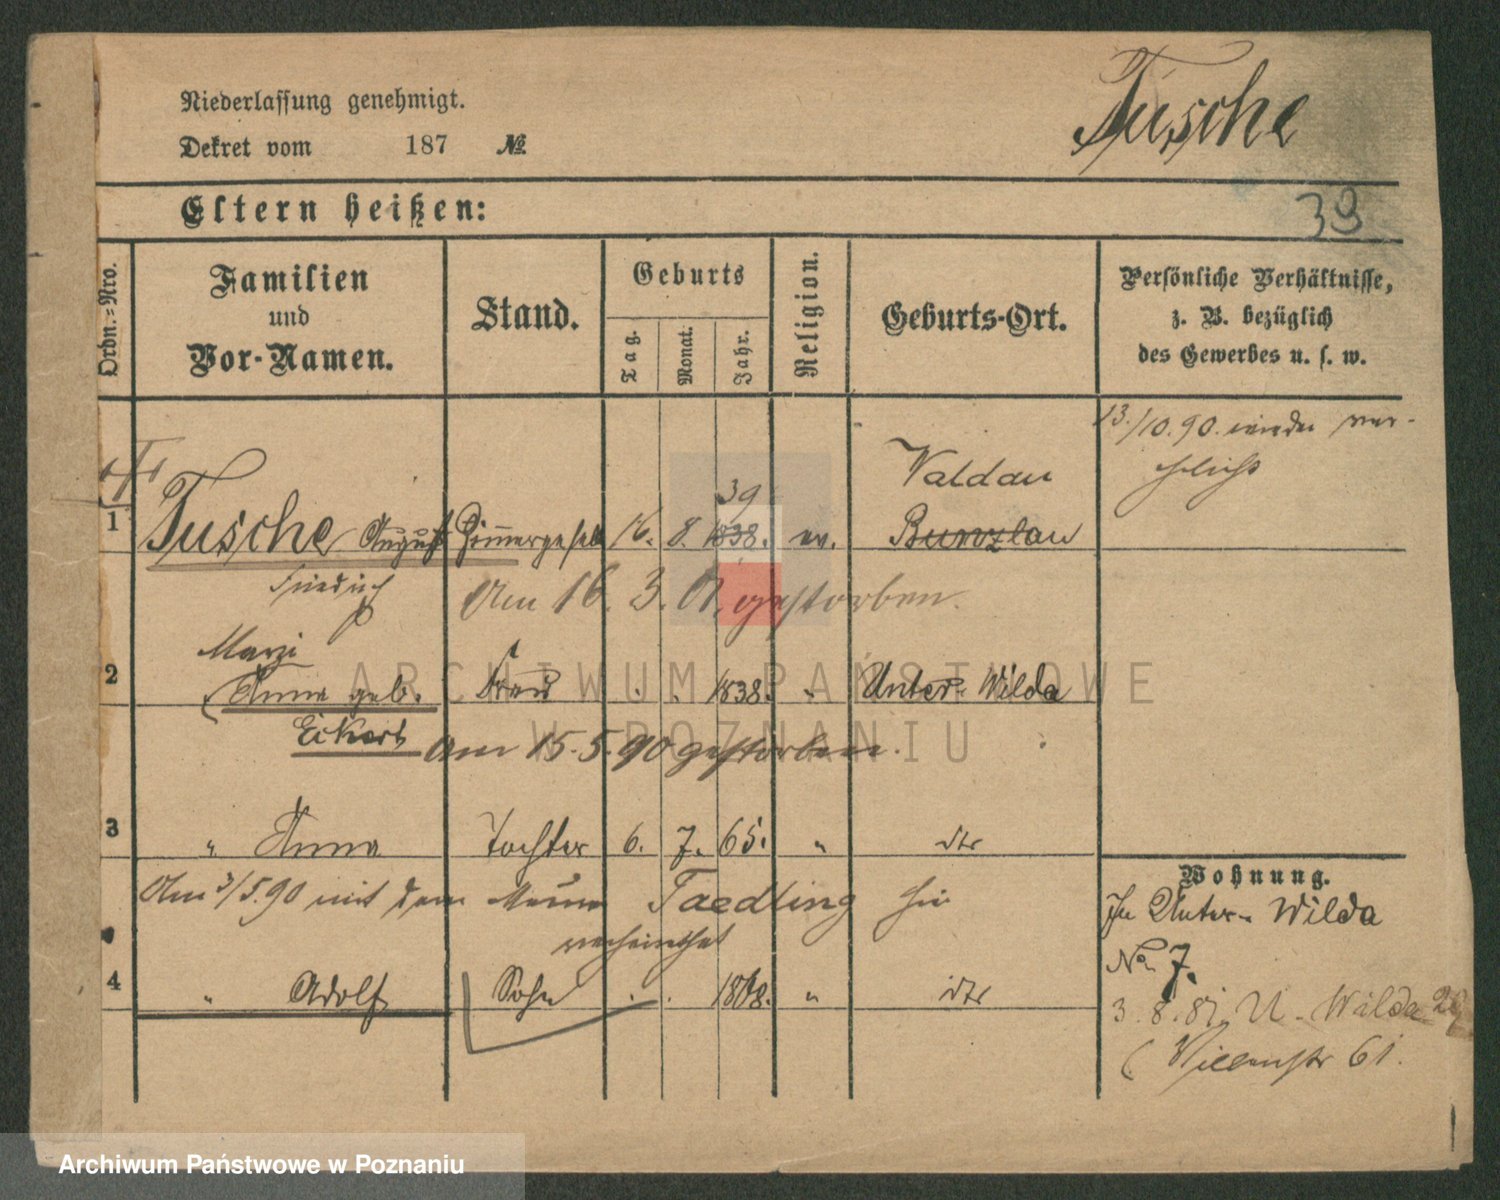 Niederlassung genehmigt.
Dekret vom 187 №
Tusche
Eltern heißen:
39
Ordn.=Nro.
Familien
und
Vor-Namen.
Stand.
Geburts
Tag.
Monat.
Jahr.
Religion.
Geburts-Ort.
Persönliche Verhältnisse,
z. B. bezüglich
des Gewerbes u. s. w.
13./10.90. wieder ver-
ehlicht
39
Waldau
1 Tusche August Zimmergesell 16. 8. 1838. ev. Bunzlau
Friedrich
Am 16. 3. 01. gestorben.
2 Anna geb. Frau . . 1838. " Unter-Wilda
Eckert
Am 15.5.90 gestorben.
3 " Anna Tochter 6. 7. 65. " dto
Am 3/5.90 mit dem Taedling hier
verheirathet
4 " Adolf Sohn . . 1868. " dto
Wohnung.
In Unter-Wilda
No 7.
3. 8. 81. U-Wilda 29
61.
ARCHIWUM PAŃSTWOWE
W POZNANIU
Archiwum Państwowe w Poznaniu